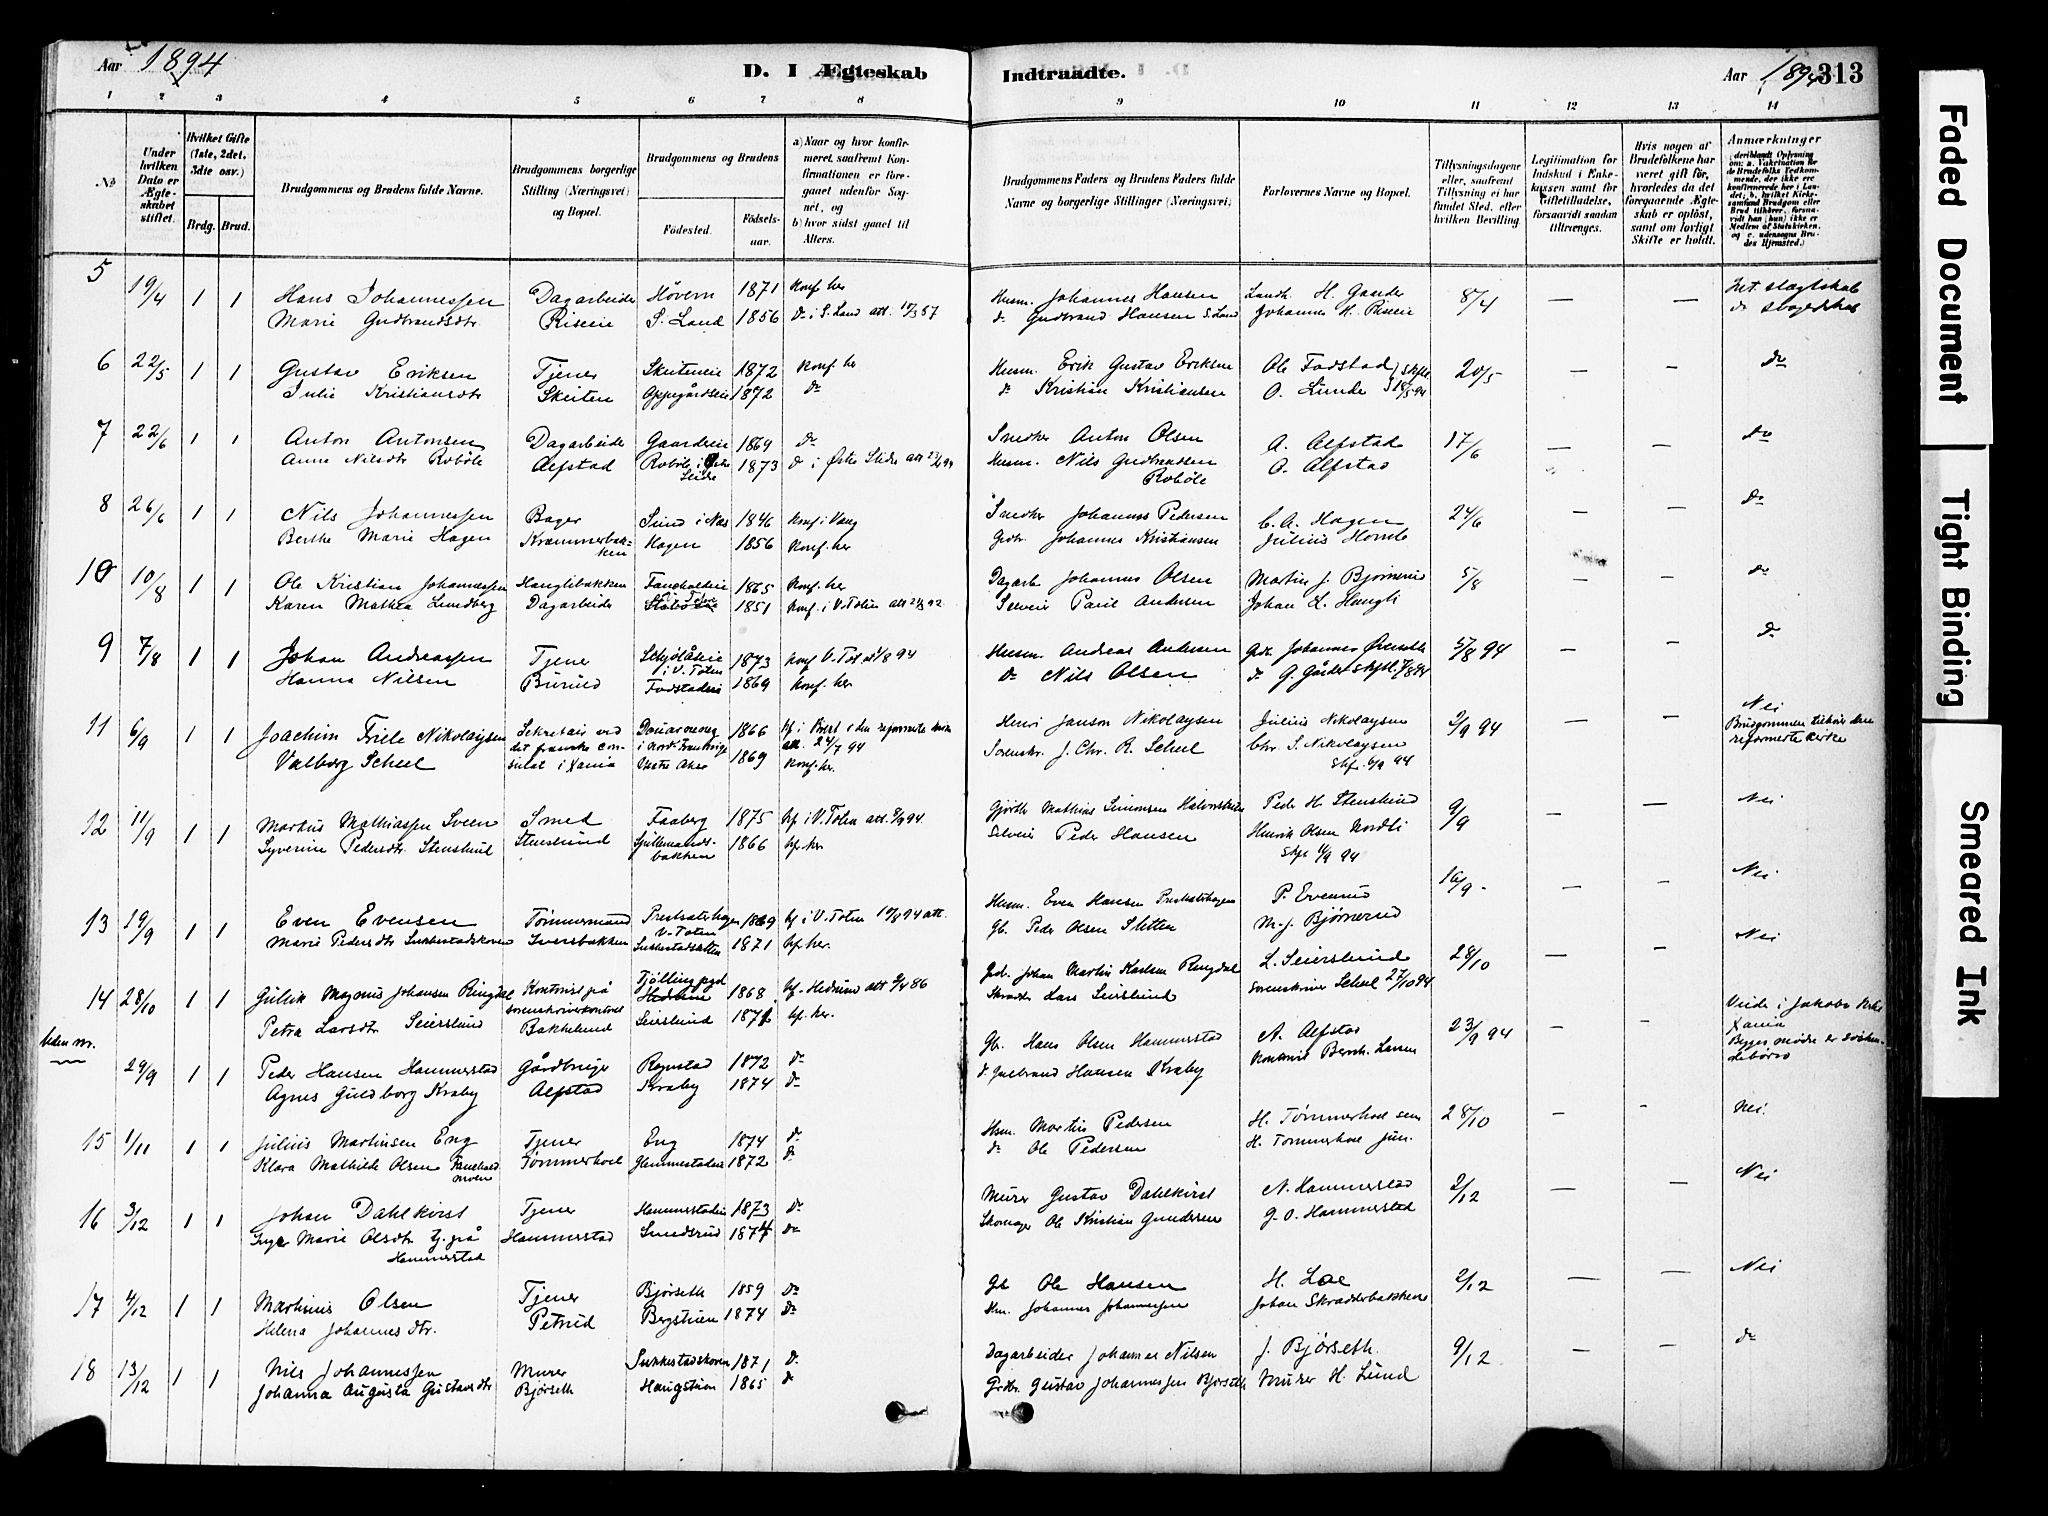 Aar 1894
D. I Ægteskab
Indtraadte.
Aar 1894
313
1 2 3 4 5 6 7 8
9 10 11 12 13 14
No
Under hvilken Dato er Ægteskabet stiftet.
Hvilket Gifte (1ste, 2det, 3die osv.)
Brdg. Brud.
Brudgommens og Brudens fulde Navne.
Brudgommens borgerlige Stilling (Næringsvei) og Bopæl.
Brudgommens og Brudens
Fødested.
Fødselsaar.
a) Naar og hvor konfirmeret, saafremt Konfirmationen er foregaaet udenfor Sognet, og
b) hvor sidst gaaet til Alters.
Brudgommens Faders og Brudens Faders fulde Navne og borgerlige Stillinger (Næringsvei).
Forlovernes Navne og Bopæl.
Tillysningsdagene eller, saafremt Tillysning ei har fundet Sted, efter hvilken Bevilling.
Legitimation for Indskud i Enkekassen samt for Giftetilladelse, forsaavidt saadan tiltrænges.
Hvis nogen af Brudefolkene har været gift før, hvorledes da det foregaaende Ægteskab er opløst, samt om lovligt Skifte er holdt.
Anmærkninger
5 19/4 1 1 Hans Johannessen Dagarbeider Høvern 1871 Konf her Husm. Johannes Hansen Landh. H. Gaarder 8/4 — — Int. slagtskab
Marie Gudbrandsdtr Riseie S. Land 1856 Do i S. Land att. do Gudbrand Hansen S. Land Johannes H. Riseie
6 22/5 1 1 Gustav Eriksen Tjener Skuteneie 1872 Konf her Husm. Erik Gustav Eriksen Ole Fodstad 20/5 — — do
Julie Kristiansdtr Skuten Oppegårdseie 1872 do do Kristian Kristiansen O. Lunde 18/5 94
7 22/6 1 1 Anton Antonsen Dagarbeider Gaardereie 1869 do Snedker Anton Olsen A. Alfstad 17/6 — — do
Anne Nilsdtr Robøle Alfstad Robøle i Østre Slidre 1873 do i Østre Slidre att Husm. Nils Gudbrandsen Robøle O. Alfstad
8 26/6 1 1 Nils Johannessen Bager Sund i Næs 1846 Konf i Vang Snedker Johannes Pedersen C. A. Hagen 24/6 — — do
Berthe Marie Hagen Kræmmerbakken Hagen 1856 Konf. her Grdbr. Johannes Kristiansen Julius Homb
10 10/8 1 1 Ole Kristian Johannessen Hauglibakken 1865 Konf. her Dagarb. Johannes Olsen Martin J. Bjørnerud 5/8 — — do
Karen Mathea Lundberg Dagarbeider 1851 Konf. i V. Toten att Selveier Paul Andersen Johan L. Haugli
9 7/8 1 1 Johan Andreassen Tjener i V. Toten 1873 Konf V. Tot 94 Husm. Andreas Andersen Grdbr. Johannes 5/8 94 — — do
Hanna Nilsen Burud Fodstadeie 1869 Konf. her do Nils Olsen do G. Gårder
11 6/9 1 1 Joachim Friele Nikolaysen Sekretair ved det franske consulat i Xania Douarnenez i Nord Frankrige 1866 Kf i Brest i den reformerte kirke att. 24/7 94 Henri Janson Nikolaysen Julius Nikolaysen 2/9 94 — — Nei Brudgommen tilhører den reformerte kirke
Valborg Scheel Vestre Aker 1869 Konf. her Sorenskr. J. Chr. R. Scheel Chr. S. Nikolaysen Skfr. 6/9 94
12 11/9 1 1 Martius Mathiassen Sveen Smed Faaberg 1875 Kf i V. Toten att. 94. Gjørtler Mathias Simonsen Peder H. Stenslund 9/9 — — Nei
Syverine Pedersdtr Stenslund Stenslund Spillemandsbakken 1866 kf. her Selveier Peder Hansen Henrik Olsen Nordli 94
13 19/9 1 1 Even Evensen Tømmermand Prestsæterhagen V. Toten 1869 kf i V. Toten att. Husm. Even Hansen Prestsæterhagen P. Evenrud 16/9 — — Nei
Marie Pedersdtr Sukkestadskoven Iversbakken 1871 kf. her. Gb. Peder Olsen Sletten M. J. Bjørnerud
14 28/10 1 1 Gullik Magnus Johansen Ringdal Kontorist på sorenskriverkontoret Tjølling pgd 1868 kf. Hedrum att 86 Grd. Johan Martin Karlsen Ringdal L. Seierslund 28/10 — — Nei
Petra Larsdtr Seierslund Bakkelund Seierslund 1871 kf. her. Skrædder Lars Seierslund Sorenskriver Scheel 27/10 94
uden nr. 29/9 1 1 Peder Hansen Hammerstad Gårdbruger Rognstad 1872 do Gb. Hans Olsen Hammerstad A. Alfstad 23/9 94 — — Viede i Jakobs Kirke Xania Begges mødre er søskendebørn
Agnes Guldborg Kraby Alfstad Kraby 1874 do do Gulbrand Hansen Kraby Kontorist Bernh. Larsen
15 1/11 1 1 Julius Martinsen Eng Tjener Eng 1874 do Hsm. Martin Pedersen H. Tømmerhoel sen 28/10 — - Nei.
Klara Mathilde Olsen Tømmerhoel 1872 do do Ole Pedersen H. Tømmerhoel jun.
16 3/12 1 1 Johan Dahlkvist Tjener Hammerstadeie 1873 do Murer Gustav Dahlkvist N. Hammerstad 2/12 — — Nei
Inger Marie Olsdtr tj. på Hammerstad Hammerstad Smedsrud 1874 do Skomager Ole Kristian Gundersen G. O. Hammerstad
17 4/12 1 1 Martinius Olsen Tjener Bjørseth 1859 do Gb. Ole Hansen H. Loe 2/12 — — Nei
Helena Johannesdtr. Petrud Bergstuen 1874 do Hsm. Johannes Johannessen Johan Skrædderbakken
18 13/12 1 1 Nils Johannessen Murer Sukkestadskoven 1871 do Dagarbeider Johannes Nilsen J. Bjørseth 9/12 — — do
Johanna Augusta Gustavsdtr Bjørseth Haugstuen 1865 do Grdbr. Gustav Johannessen Bjørseth Murer H. Lund
Faded Document
Tight Binding
Smeared Ink